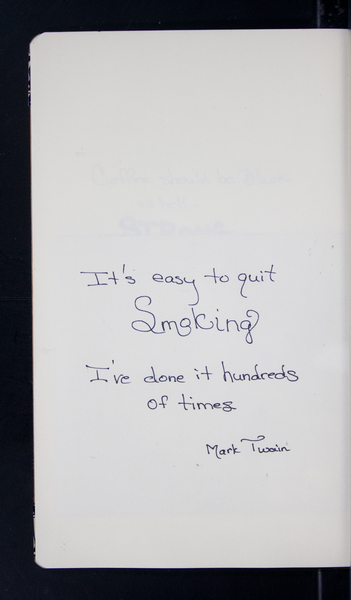 It's easy to quit
Smoking
I've done it hundreds
of times.
Mark Twain